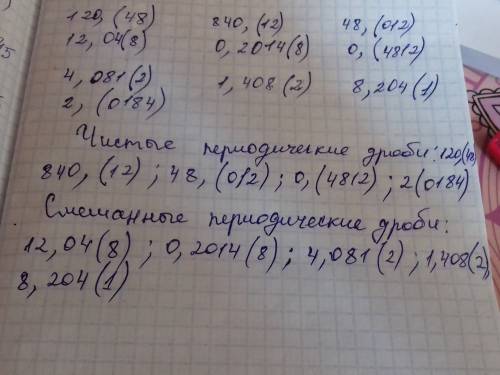 120,(48) 840,(12) 48,(012)
12,04(8) 0,2014(8) 0,(4812)
4,081(2) 1,408(2) 8,204(1)
2,(0184)
Чистые периодические дроби: 120,(48)
840,(12); 48,(012); 0,(4812); 2(0184)
Смешанные периодические дроби:
12,04(8); 0,2014(8); 4,081(2); 1,408(2),
8,204(1)